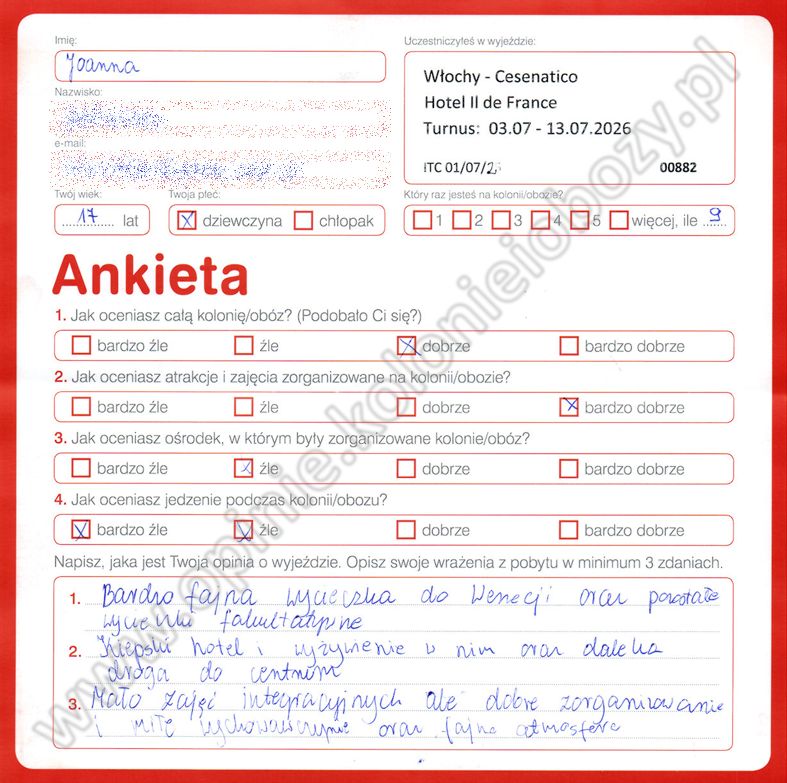 Imię:
Joanna
Uczestniczyłeś w wyjeździe:
Włochy - Cesenatico
Hotel Il de France
Turnus: 03.07 - 13.07.2026
ITC 01/07/2 00882
Nazwisko:
e-mail:
Twój wiek:
17 lat
Twoja płeć:
X dziewczyna chłopak
Który raz jesteś na kolonii/obozie?
1 2 3 4 5 więcej, ile 9
Ankieta
1. Jak oceniasz całą kolonię/obóz? (Podobało Ci się?)
bardzo źle źle X dobrze bardzo dobrze
2. Jak oceniasz atrakcje i zajęcia zorganizowane na kolonii/obozie?
bardzo źle źle dobrze X bardzo dobrze
3. Jak oceniasz ośrodek, w którym były zorganizowane kolonie/obóz?
bardzo źle X źle dobrze bardzo dobrze
4. Jak oceniasz jedzenie podczas kolonii/obozu?
X bardzo źle X źle dobrze bardzo dobrze
Napisz, jaka jest Twoja opinia o wyjeździe. Opisz swoje wrażenia z pobytu w minimum 3 zdaniach.
1. Bardzo fajna wycieczka do Wenecji oraz pozostałe
wycieczki fakultatywne
2. Kiepski hotel i wyżywienie w nim oraz daleka
droga do centrum
3. Mało zajęć integracyjnych ale dobre zorganizowanie
i miłe wychowawczynie oraz fajna atmosfera
www.opinie.kolonieiobozy.pl